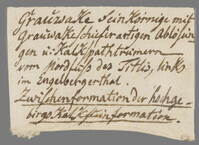 Grauwake feinkörnige mit
Grauwakeschieferartigen Ablösun
gen u: Kalkspathtrümern
vom Nordfuß des Titlis, links
im Engelbergerthal.
Zwischenformation der hochge-
birgs Kalksteinformation.